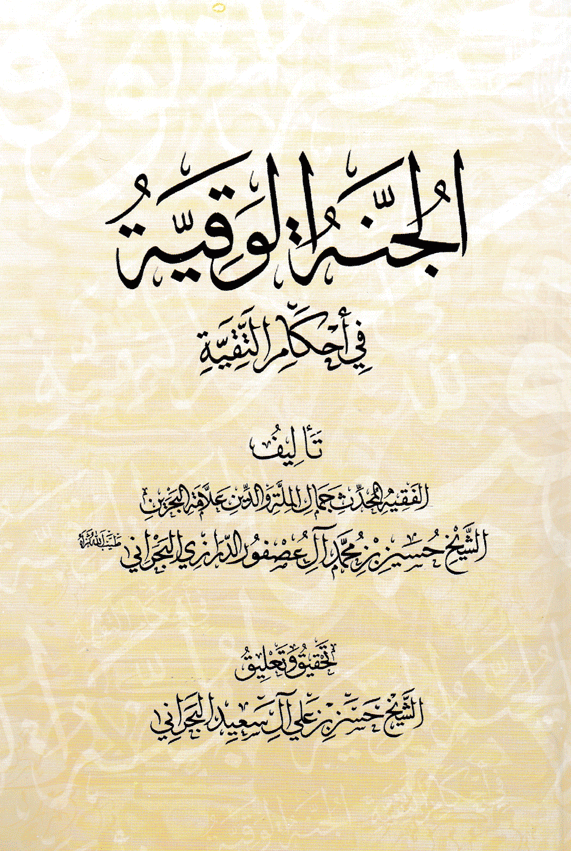 الجُنَّةُ الوَقِيَّةُ
فِي أَحْكَامِ التَّقِيَّةِ
تَأْلِيفُ
الفَقِيهِ المُحَدِّثِ جَمَالِ المِلَّةِ وَالدِّينِ عَلَّامَةِ البَحْرَيْنِ
الشَّيْخِ حُسَيْنِ بْنِ مُحَمَّدٍ آلِ عُصْفُورٍ الدِّرَازِيِّ البَحْرَانِيِّ
تَحْقِيقُ وَتَعْلِيقُ
الشَّيْخِ حَسَنِ بْنِ عَلِي آلِ سَعِيدٍ البَحْرَانِيِّ